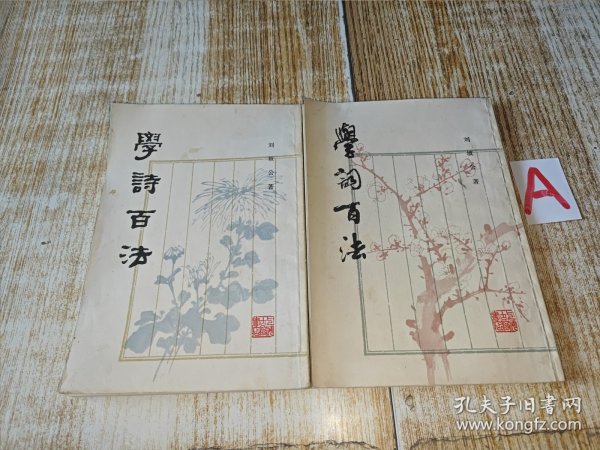 學詩百法
刘坡公著
學詞百法
刘坡公著
A
孔夫子旧书网
kongfz.com